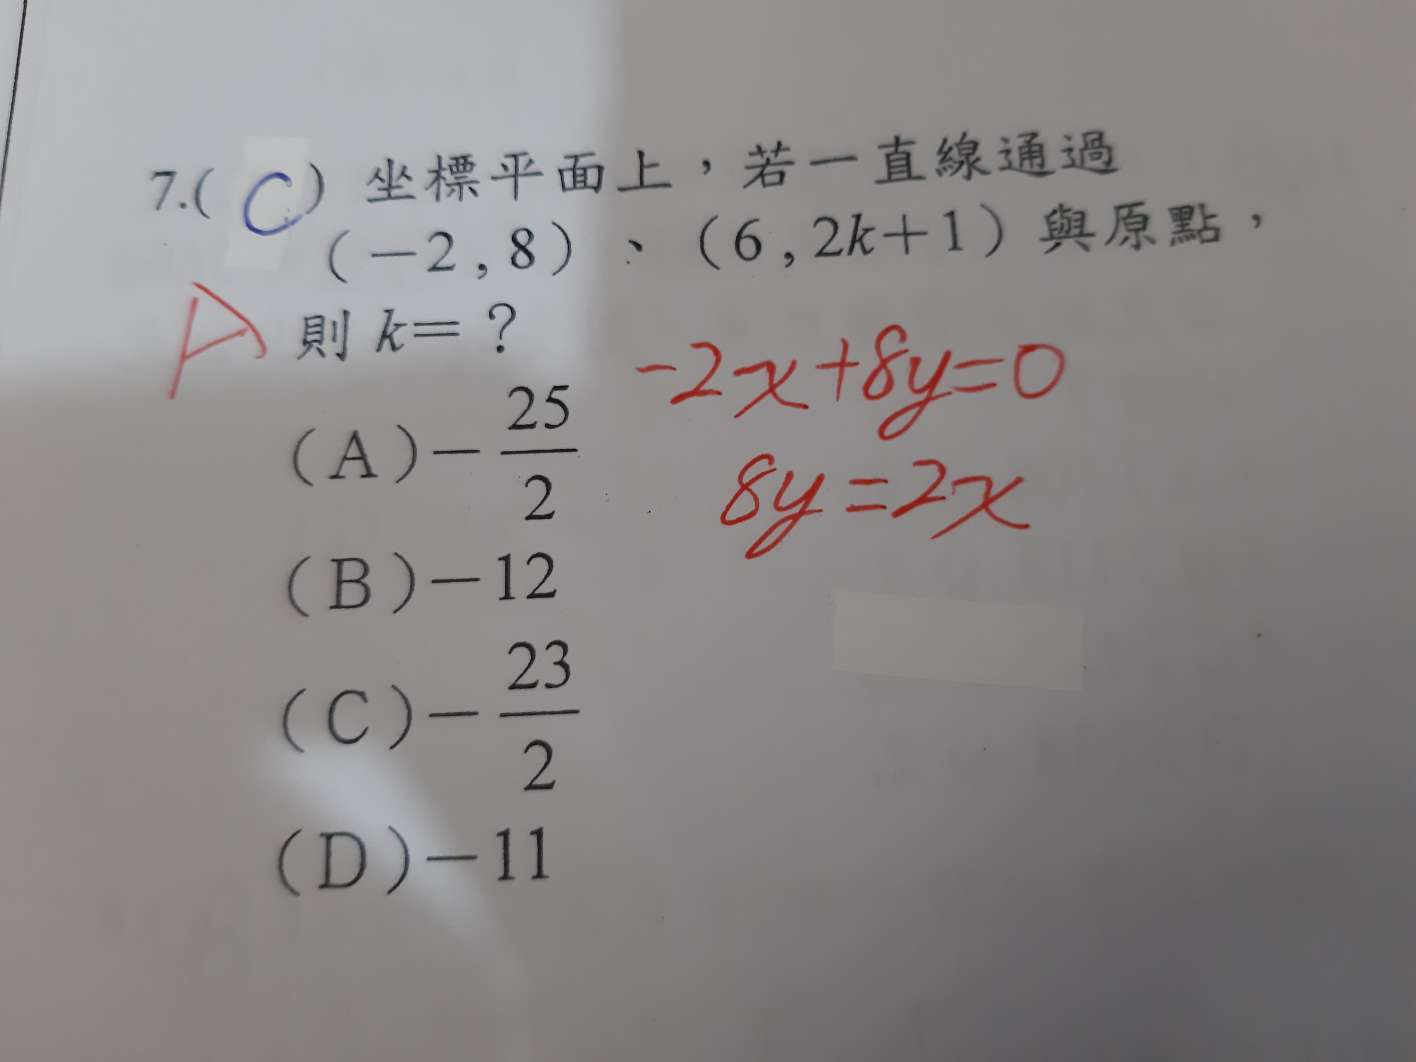 7.( C ) 坐標平面上，若一直線通過
(－2 , 8)、(6 , 2k＋1)與原點，
A
則 k＝？
-2x+8y=0
(A)－25/2
8y=2x
(B)－12
(C)－23/2
(D)－11